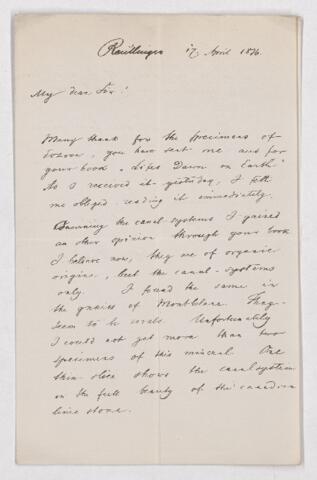 Reutlingen 17 April 1876.
My dear Sir!
Many thank for the specimens of
Eozoon, you have sent me and for
your book „Life's Dawn on Earth"
As I received it yesterday, I felt
me obliged reading it immediately.
Concerning the canal-systems I gained
an other opinion through your book
I believe now, they are of organic
origine, but the canal-systems
only. I found the same in
the gneiss of Montblanc. They
seem to be corals. Unfortunately
I could not get more than two
specimens of this mineral. One
thin-slice shows the canal system
in the full beauty of the canadian
lime stone.